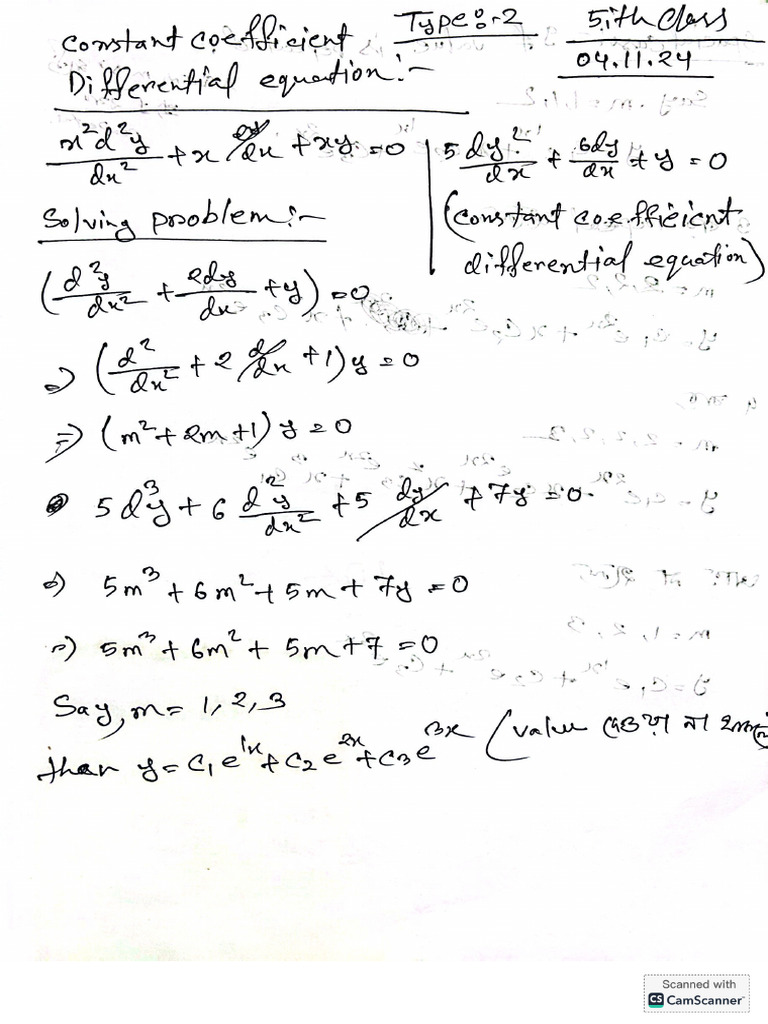 constant coefficient Type:-2 5ith class
Differential equation:- 04.11.24
x²d²y/dx² + x dy/dx + xy = 0 | 5 dy²/dx + 6dy/dx + y = 0
Solving problem:- (constant coefficient
differential equation)
(d²y/dx² + 2dy/dx + y) = 0
=> (d²/dx² + 2 d/dx + 1) y = 0
=> (m² + 2m + 1) y = 0
5 d³y + 6 d²y/dx² + 5 dy/dx + 7y = 0
=> 5m³ + 6m² + 5m + 7y = 0
=> 5m³ + 6m² + 5m + 7 = 0
Say, m = 1, 2, 3
than y = C₁e¹ˣ + C₂e²ˣ + C₃e³ˣ (value দেওয়া না
Scanned with
CS CamScanner